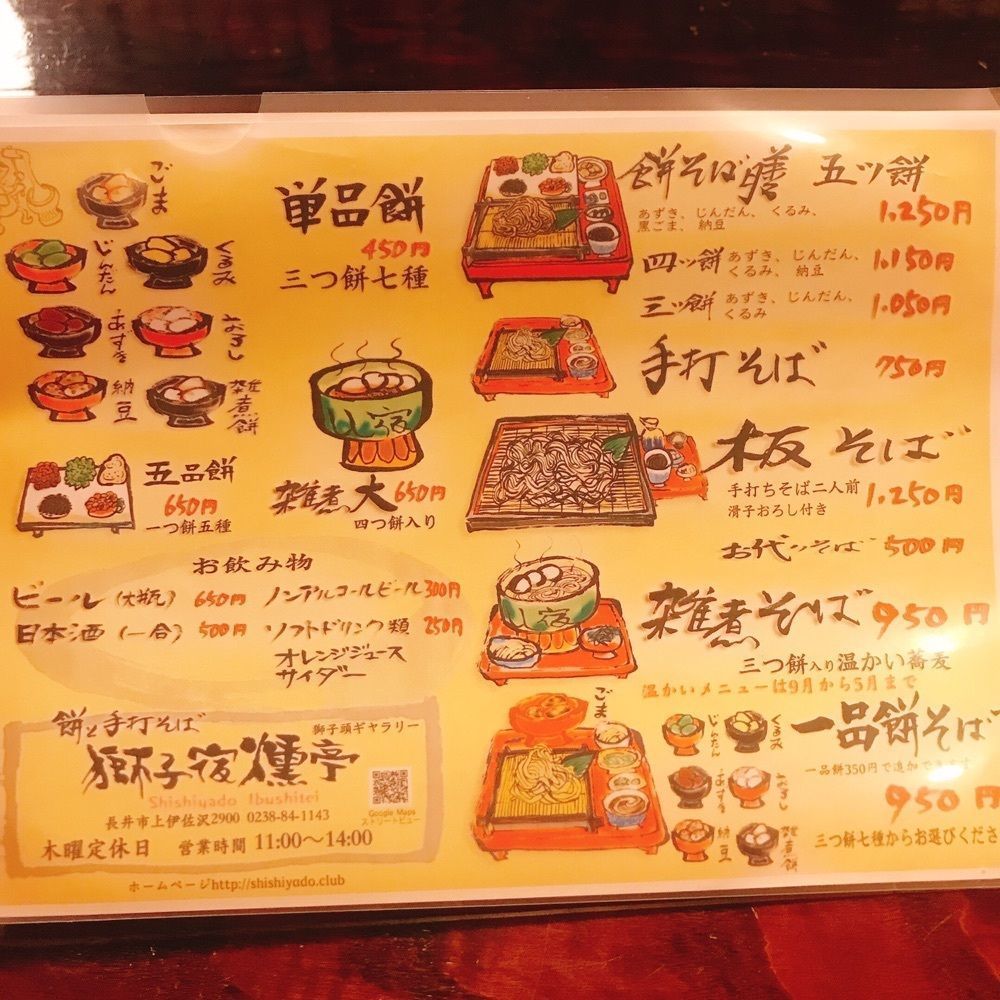 ごま
じんだん
くるみ
あずき
おろし
納豆
雑煮餅
単品餅
450円
三つ餅七種
五品餅
650円
一つ餅五種
雑煮大 650円
四つ餅入り
お飲み物
ビール(大瓶) 650円
ノンアルコールビール 300円
日本酒(一合) 500円
ソフトドリンク類 250円
オレンジジュース
サイダー
餅と手打そば
獅子頭ギャラリー
獅子宿燻亭
Shishiyado Ibushitei
Google Maps
ストリートビュー
長井市上伊佐沢2900 0238-84-1143
木曜定休日 営業時間 11:00〜14:00
ホームページhttp://shishiyado.club
餅そば膳 五ツ餅
あずき、じんだん、くるみ、
黒ごま、納豆
1.250円
四ッ餅 あずき、じんだん、
くるみ、納豆
1.150円
三ッ餅 あずき、じんだん、
くるみ
1.050円
手打そば 750円
板そば
手打ちそば二人前
滑子おろし付き
1.250円
お代りそば 500円
宿
雑煮そば 950円
三つ餅入り温かい蕎麦
温かいメニューは9月から5月まで
一品餅そば
一品餅350円で追加できます
950円
三つ餅七種からお選びくださ
ごま
じんだん
くるみ
あずき
おろし
納豆
雑煮餅